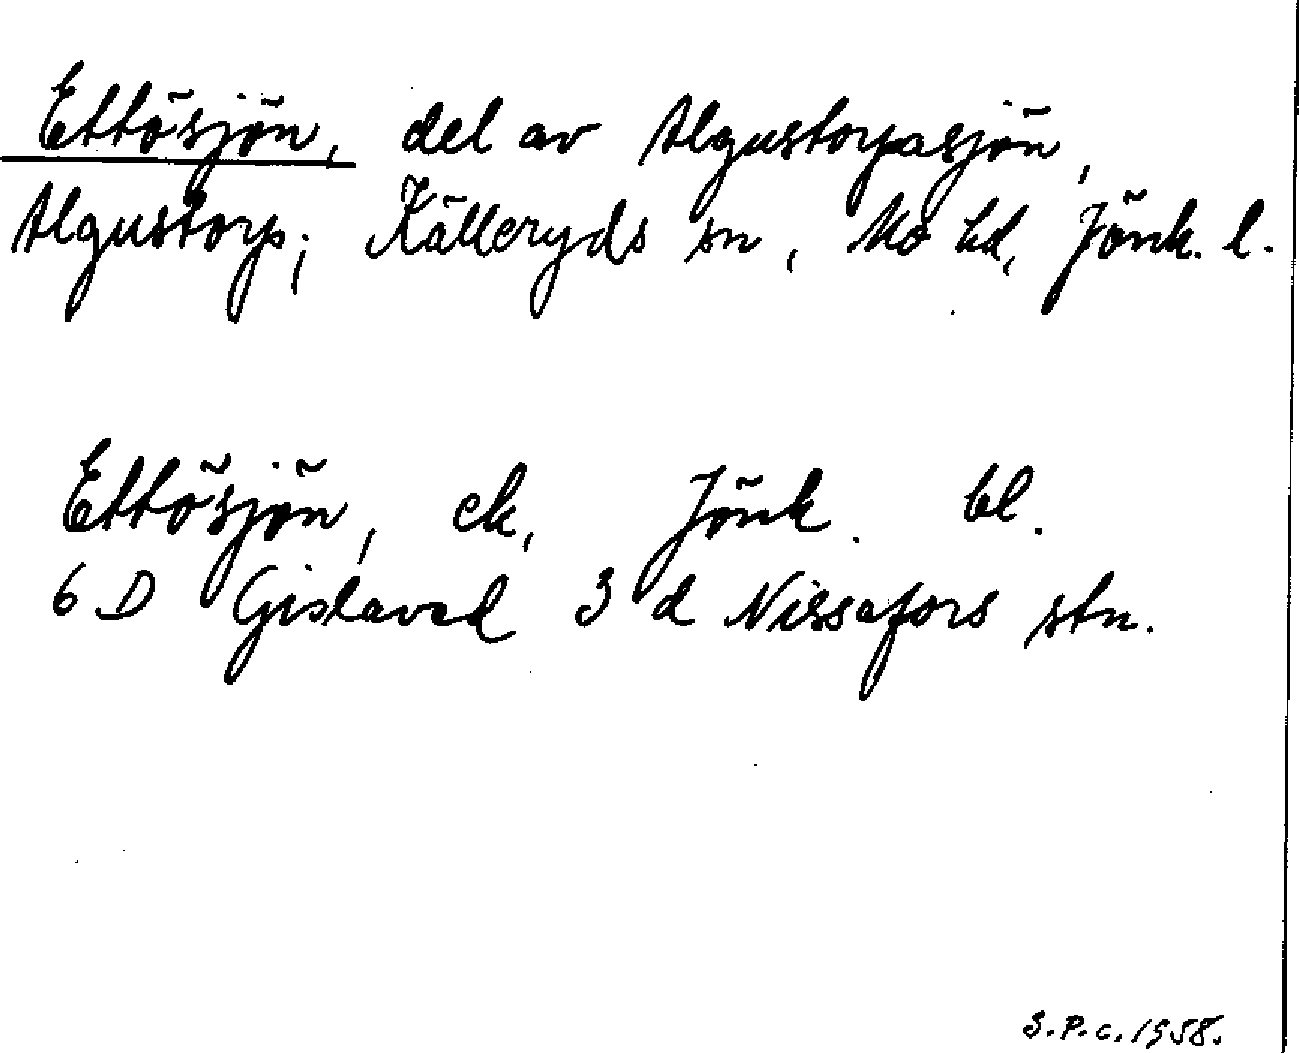 Ettösjön, del av Algustorpasjön,
Algustorp; Källeryds sn, Mo hd, Jönk. l.
Ettösjön, ek, Jönk. bl.
6 D Gislaved 3 d Nissafors stn.
S.P.C. 1958.